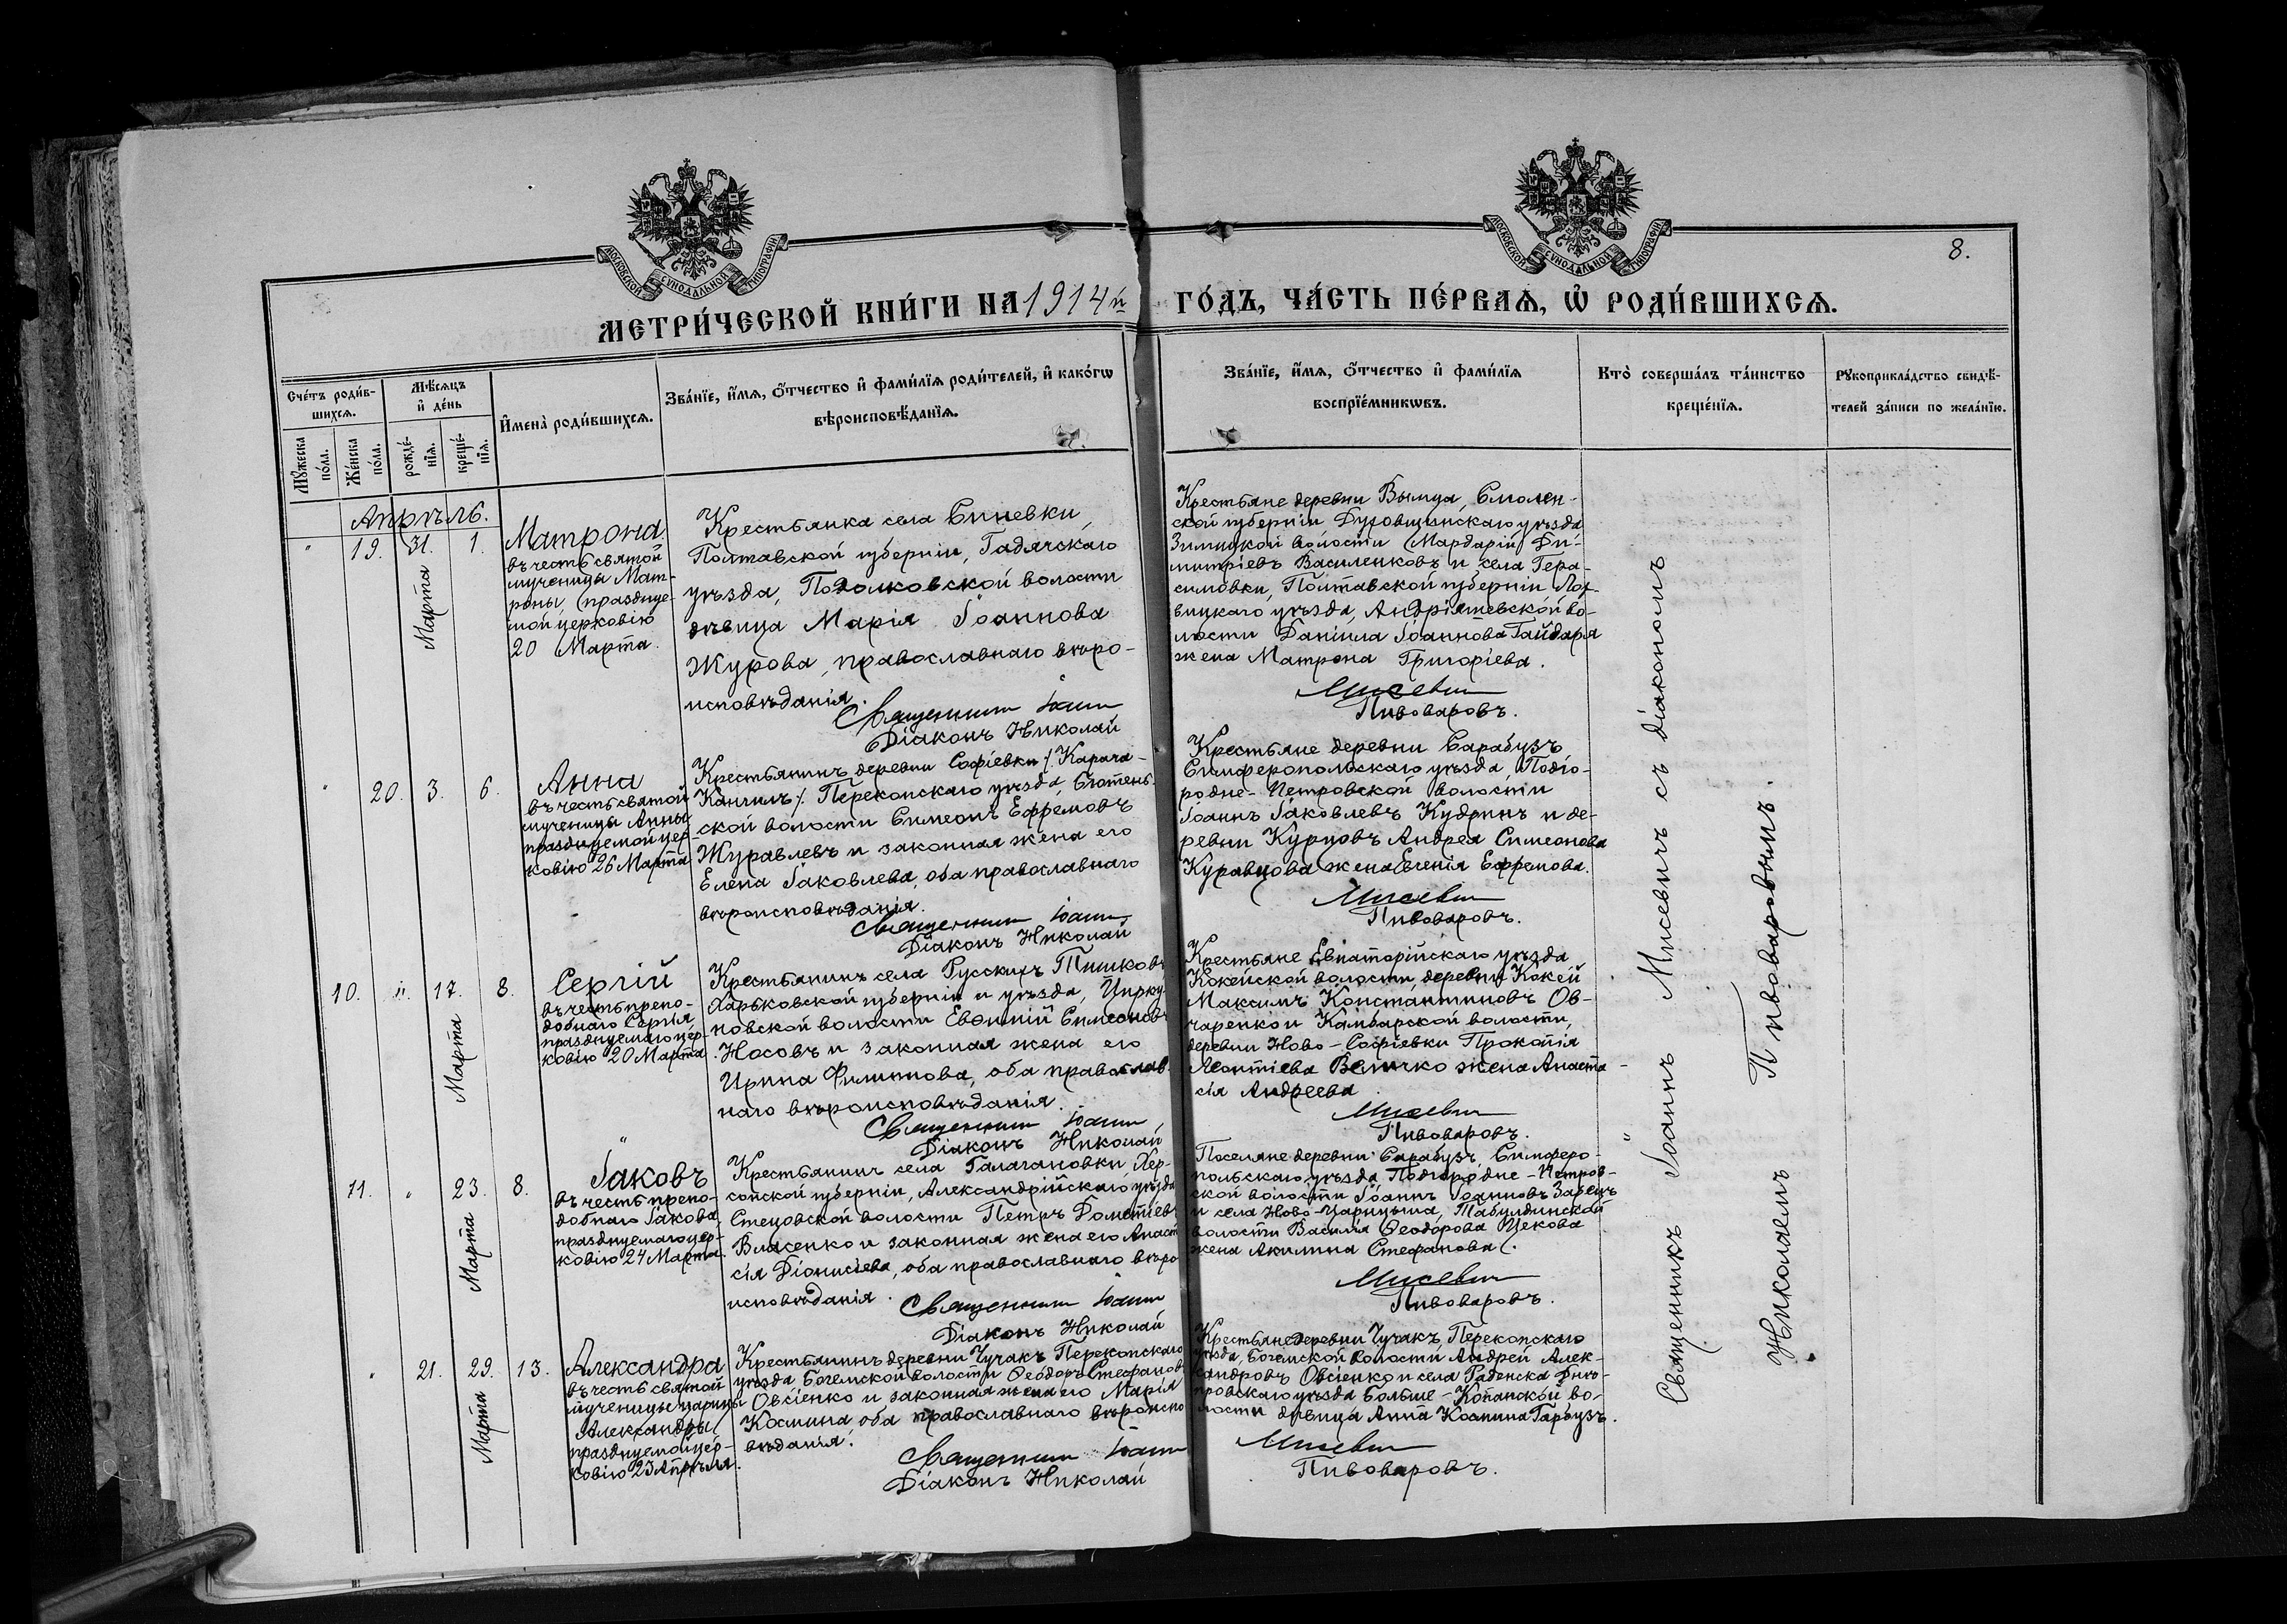 МОСКОВСКОЙ СУНОДАЛЬНОЙ ТИПОГРАФІИ
МОСКОВСКОЙ СУНОДАЛЬНОЙ ТИПОГРАФІИ
8.
МЕТРИ́ЧЕСКОЙ КНИ́ГИ НА 1914й ГО́ДЪ, ЧА́СТЬ ПЕ́РВАѦ, Ѡ РОДИ́ВШИХСѦ.
Сче́тъ роди́в-
шихсѧ.
Мꙋ́жеска
по́ла.
Же́нска
по́ла.
Мѣ́сѧцъ
и҆ де́нь
рожде́-
нїѧ.
креще́-
нїѧ.
И҆мена̀ роди́вшихсѧ.
Зва́нїе, и҆́мѧ, ѻ҆́тчество и҆ фами́лїѧ роди́телей, и҆ како́гѡ
вѣроисповѣ́данїѧ.
Зва́нїе, и҆́мѧ, ѻ҆́тчество и҆ фами́лїѧ
воспрїе́мникѡвъ.
Кто̀ соверша́лъ та́инство
креще́нїѧ.
Рꙋкоприкла́дство свидѣ́-
телей за́писи по жела́нїю.
Апрѣль.
" 19. 31. 1.
Марта
Матрона.
въ честь святой
мученицы Мат-
роны, (праздуе-
мой церковію
20 Марта.
Крестьянка села Синевки,
Полтавской губерніи, Гадячскаго
уѣзда, Подолковской волости
дѣвица Марія Іоаннова
Журова, православнаго вѣро-
исповѣданія.
Священникъ Іоаннъ
Діаконъ Николай
Крестьяне деревни Смолен-
ской губерніи Духовщинскаго уѣзда
волости Мардарій Ди-
митріевъ Василенковъ и села Гера-
симовки, Полтавской губерніи Лох-
вицкаго уѣзда, Андріяшевской во-
лости Даніила Іоаннова Гайдаря
жена Матрона Григоріева.
Мисевичъ
Пивоваровъ.
" 20. 3. 6.
Анна
въ честь святой
мученицы Анны
празднуемой цер-
ковію 26 Марта
Крестьянинъ деревни Софіевки /. Карача-
Кангилъ /. Перекопскаго уѣзда,
ской волости Симеонъ Ефремовъ
Журавлевъ и законная жена его
Елена Іаковлева, оба православнаго
вѣроисповѣданія.
Священникъ Іоаннъ
Діаконъ Николай
Крестьяне деревни Сарабузъ
Симферопольскаго уѣзда, Подго-
родне-Петровской волости
Іоаннъ Іаковлевъ Кудринъ и де-
ревни Курцовъ Андрея Симеонова
Куравцова жена Евгенія Ефремова.
Мисевичъ
Пивоваровъ.
10. " 17. 8.
Марта
Сергій
въ честь препо-
добнаго Сергія,
празднуемаго цер-
ковію 20 Марта.
Крестьянинъ села Русскихъ Тишковъ
Харьковской губерніи и уѣзда, Цирку-
новской волости Евѳимій Симеоновъ
Носовъ и законная жена его
Ирина Филиппова, оба православ-
наго вѣроисповѣданія.
Священникъ Іоаннъ
Діаконъ Николай
Крестьяне Евпаторійскаго уѣзда
Кокейской волости, деревни Кокей
Максимъ Константиновъ Ов-
чаренко и Камбарской волости,
деревни Ново-Софіевки Прокопія
Леонтіева Величко жена Анаста-
сія Андреева
Мисевичъ
Пивоваровъ.
11. " 23. 8.
Марта
Іаковъ
въ честь препо-
добнаго Іакова,
празднуемаго цер-
ковію 24 Марта.
Крестьянинъ села Галагановки Хер-
сонской губерніи, Александрійскаго уѣзда
Стецовской волости Петръ Дометіевъ
Власенко и законная жена его Анаста
сія Діонисіева, оба православнаго вѣро
исповѣданія.
Священникъ Іоаннъ
Діаконъ Николай
Поселяне деревни Сарабузъ, Симферо-
польскаго уѣзда, Подгородне-Петров-
ской волости Іоаннъ Іоанновъ
и села Ново-Царицына, Табулдинской
волости Василія Ѳеодорова Цекова
жена Акилина Стефанова.
Мисевичъ
Пивоваровъ.
" 21. 29. 13.
Марта
Александра
въ честь святой
мученицы царицы
Александры,
празднуемой цер-
ковію 23 Апрѣля.
Крестьянинъ деревни Чучакъ Перекопскаго
уѣзда Богемской волости Ѳеодоръ Стефановъ
Овсіенко и законная жена его Марія
Космина, оба православнаго вѣроиспо
вѣданія.
Священникъ Іоаннъ
Діаконъ Николай
Крестьяне деревни Чучакъ, Перекопскаго
уѣзда, Богемской волости Андрей Алек-
сандровъ Овсіенко и села Раденска Днѣ-
провскаго уѣзда Больше-Копанской во-
лости дѣвица Анна Космина Гарбузъ.
Мисевичъ
Пивоваровъ.
Священникъ Іоаннъ Мисевичъ съ діакономъ
Николаемъ Пивоваровымъ.